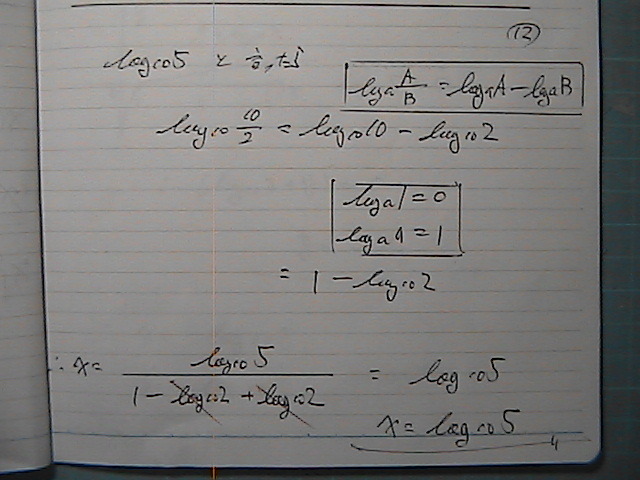 (12)
log₁₀5
logₐ A/B = logₐA - logₐB
log₁₀ 10/2 = log₁₀10 - log₁₀2
logₐ1 = 0
logₐA = 1
= 1 - log₁₀2
∴ x = log₁₀5 / (1 - log₁₀2 + log₁₀2) = log₁₀5
x = log₁₀5